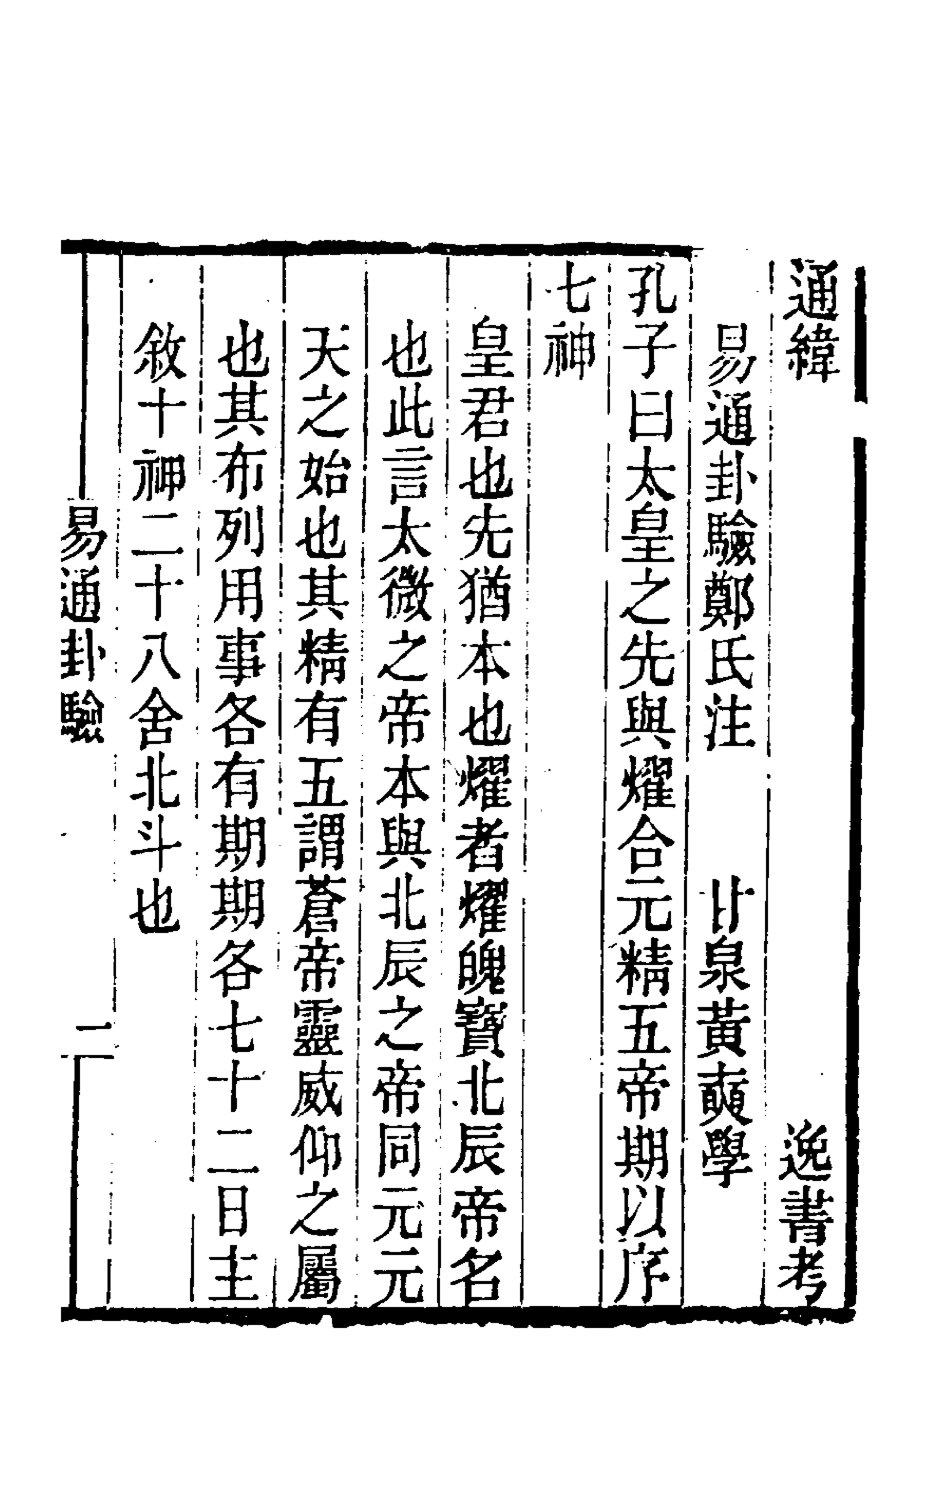 通緯　逸書考
易通卦驗鄭氏注　甘泉黃奭學
孔子曰太皇之先與燿合元精五帝期以序
七神
皇君也先猶本也燿者燿魄寶北辰帝名
也此言太微之帝本與北辰之帝同元元
天之始也其精有五謂蒼帝靈威仰之屬
也其布列用事各有期期各七十二日主
敘十神二十八舍北斗也
易通卦驗　二